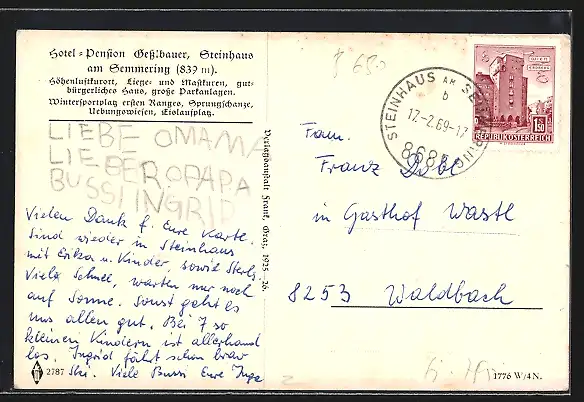 Hotel-Pension Geßlbauer, Steinhaus
am Semmering (839 m).
Höhenluftkurort, Liege- und Mastkuren, gut-
bürgerliches Haus, große Parkanlagen.
Wintersportplatz ersten Ranges, Sprungschanze,
Uebungswiesen, Eislaufplatz.
LIEBE OMAMA
LIEBER OPAPA
BUSSI INGRID
Vielen Dank f. Eure Karte.
Sind wieder in Steinhaus
mit Erika u. Kinder, sowie
Viel Schnee, warten nur noch
auf Sonne. Sonst geht es
uns allen gut. Bei 7 so
kleinen Kindern ist allerhand
los. Ingrid fährt schon brav
Ski. Viele Bussi Eure Inge
2787
Verlagsanstalt Frank, Graz, 1925-26.
STEINHAUS AM SEMMERING
b
17.-2.69-17
8685
REPUBLIK ÖSTERREICH
1.50
Fam.
Franz Dobl
in Gasthof Wastl
8253 Waldbach
1776 W/4 N.